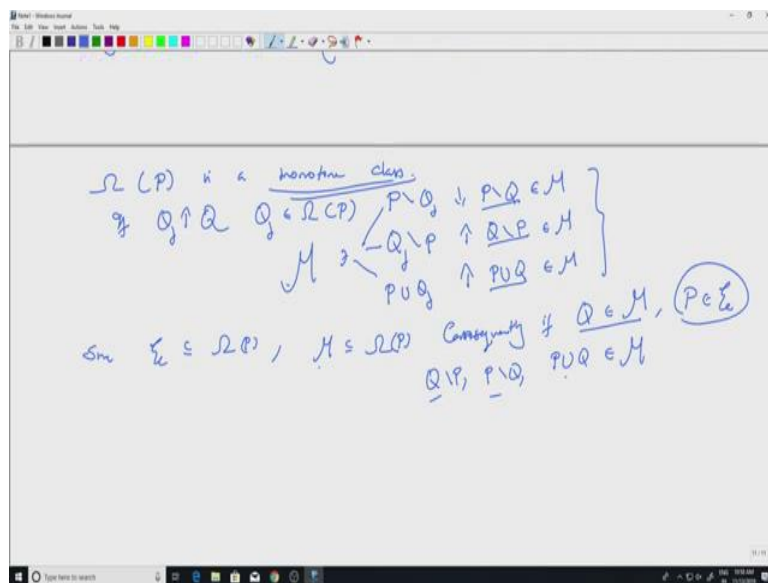 Note1 - Windows Journal
File Edit View Insert Actions Tools Help
Ω(P) is a monotone class.
If Q_j ↑ Q Q_j ∈ Ω(P)
P\Q_j ↓ P\Q ∈ M
M ∋ Q_j\P ↑ Q\P ∈ M
P∪Q_j ↑ P∪Q ∈ M
Since ξ ⊆ Ω(P), M ⊆ Ω(P) Consequently if Q ∈ M, P ∈ ξ
Q\P, P\Q, P∪Q ∈ M
11/11
Type here to search
ENG 10:58 AM